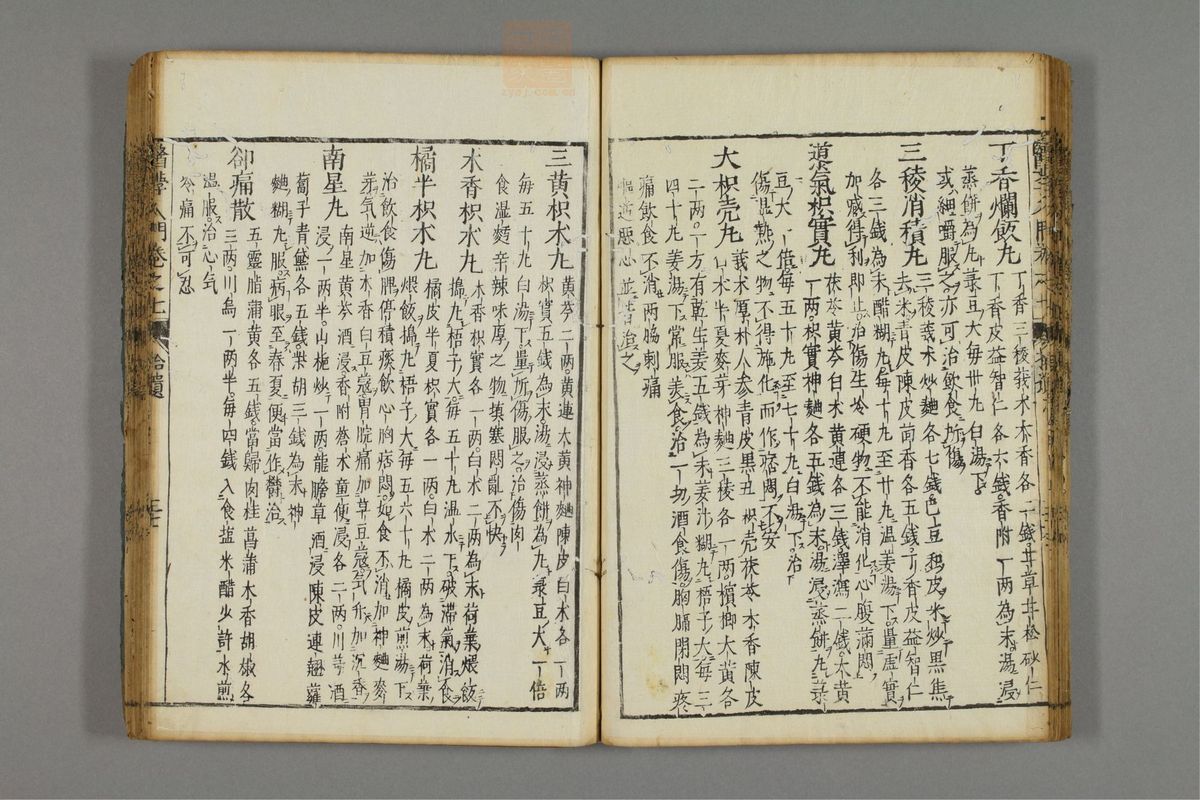 丁香爛飲丸 丁香三稜莪朮木香各一錢甘草甘松砂仁
丁香皮益智仁各六錢香附一兩為末湯浸
蒸餅為丸菉豆大每卅丸白湯下
或細嚼服之亦可治飲食所傷
三稜消積丸 三稜莪朮炒麯各七錢巴豆和皮米炒黑焦
去米青皮陳皮茴香各五錢丁香皮益智仁
各三錢為末醋糊丸每十丸至廿丸温姜湯下量虛實
加减得利即止治傷生冷硬物不能消化心腹滿悶
導氣枳實丸 茯苓黃芩白朮黃連各三錢澤瀉二錢大黃
一兩枳實神麯各五錢為末湯浸蒸餅丸菉
豆大一倍每五十丸至七十丸白湯下治
傷濕熱之物不得施化而作痞悶不安
大枳壳丸 莪朮厚朴人參青皮黑丑枳壳茯苓木香陳皮
白朮半夏麥芽神麯三稜各一兩檳榔大黃各
二兩一方有乾生姜五錢為末姜汁糊丸梧子大每三
四十丸姜湯下常服美食治一切酒食傷胸膈閉悶疼
痛飲食不消兩脇刺痛
嘔逆惡心並皆治之
三黃枳朮丸 黃芩二兩黃連大黃神麯陳皮白朮各一兩
枳實五錢為末湯浸蒸餅為丸菉豆大一倍
每五十丸白湯下量所傷服之治傷肉
食濕麵辛辣味厚之物填塞悶亂不快
木香枳朮丸 木香枳實各一兩白朮二兩為末荷葉煨飯
搗丸梧子大每五十丸温水下破滯氣消食
橘半枳朮丸 橘皮半夏枳實各一兩白朮二兩為末荷葉
煨飯搗丸梧子大每五六十丸橘皮煎湯下
治飲食傷脾停積痰飲心胸痞悶如食不消加神麯麥
芽氣逆加木香白豆蔻胃脘痛加草豆蔻氣升加沉香
南星丸 南星黃芩酒浸香附蒼朮童便浸各二兩川芎酒
浸一兩半山梔炒一兩龍膽草酒浸陳皮連翹蘿
蔔子青黛各五錢柴胡三錢為末神
麯糊丸服病眼至春夏便當作欝治
卻痛散 五靈脂蒲黃各五錢當歸肉桂菖蒲木香胡椒各
三兩川烏一兩半每四錢入食塩米醋少許水煎
温服治心氣
冷痛不可忍
醫學入門卷之七 拾遺